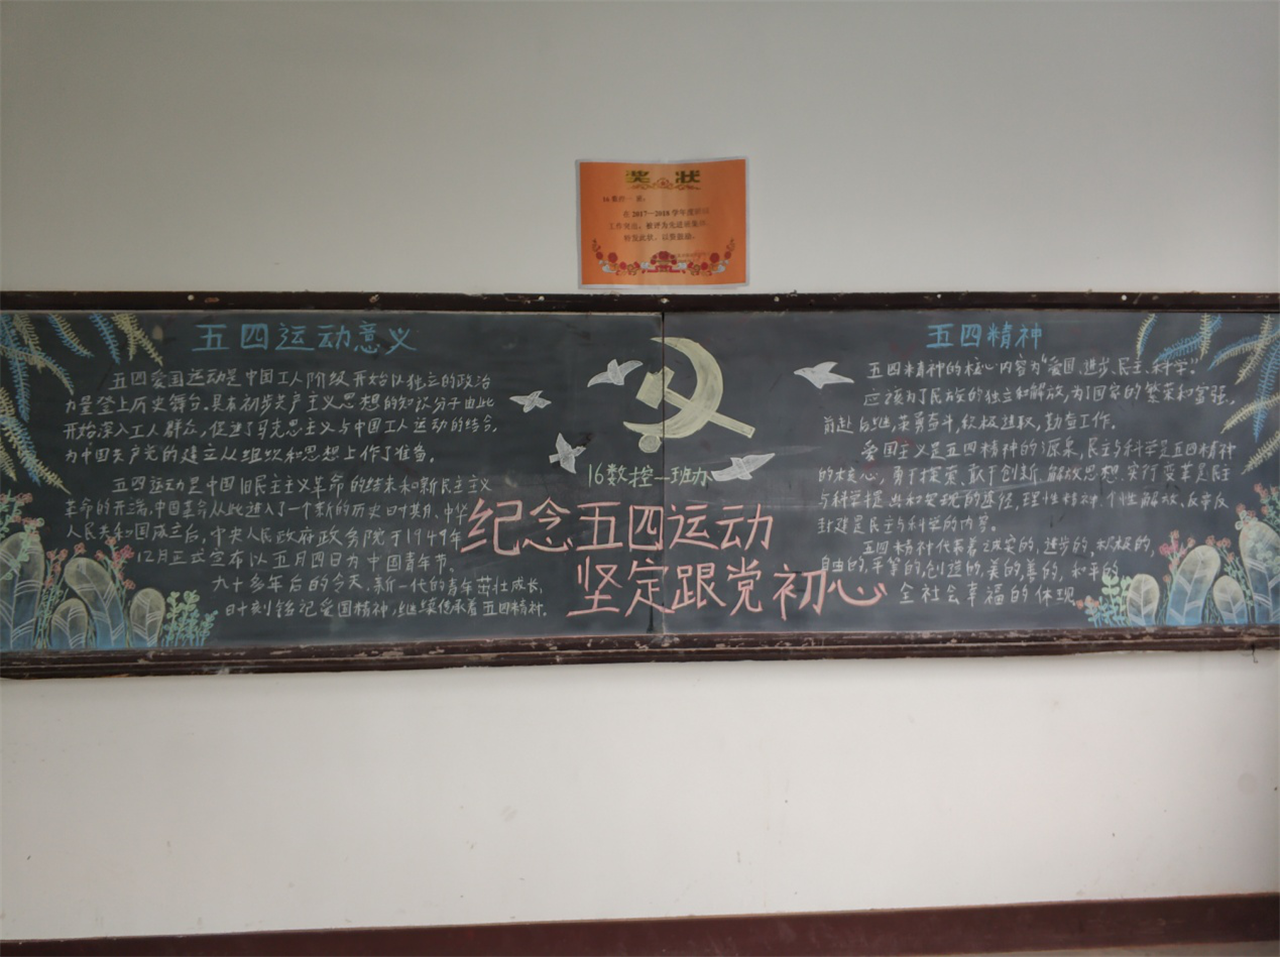 奖状
16数控一班:
在2017—2018学年度班级
工作突出,被评为先进班集体,
特发此状,以资鼓励。
五四运动意义
五四爱国运动是中国工人阶级开始以独立的政治
力量登上历史舞台。具有初步共产主义思想的知识分子由此
开始深入工人群众,促进了马克思主义与中国工人运动的结合,
为中国共产党的建立从组织和思想上作了准备。
五四运动是中国旧民主主义革命的结束和新民主主义
革命的开端,中国革命从此进入了一个新的历史时期、中华
人民共和国成立后,中央人民政府政务院于1949年
12月正式宣布以五月四日为中国青年节。
九十多年后的今天、新一代的青年茁壮成长,
时刻铭记爱国精神,继续传承着五四精神.
16数控一班办
纪念五四运动
坚定跟党初心
五四精神
五四精神的核心内容为"爱国、进步、民主、科学"。
应该为了民族的独立和解放,为了国家的繁荣和富强,
前赴后继,英勇奋斗,积极进取,勤奋工作。
爱国主义是五四精神的源泉,民主与科学是五四精神
的核心,勇于探索、敢于创新、解放思想、实行变革是民主
与科学提出和实现的途径,理性精神、个性解放、反帝反
封建是民主与科学的内容。
五四精神代表着诚实的,进步的,积极的,
自由的,平等的,创造的,美的,善的,和平的
全社会幸福的体现